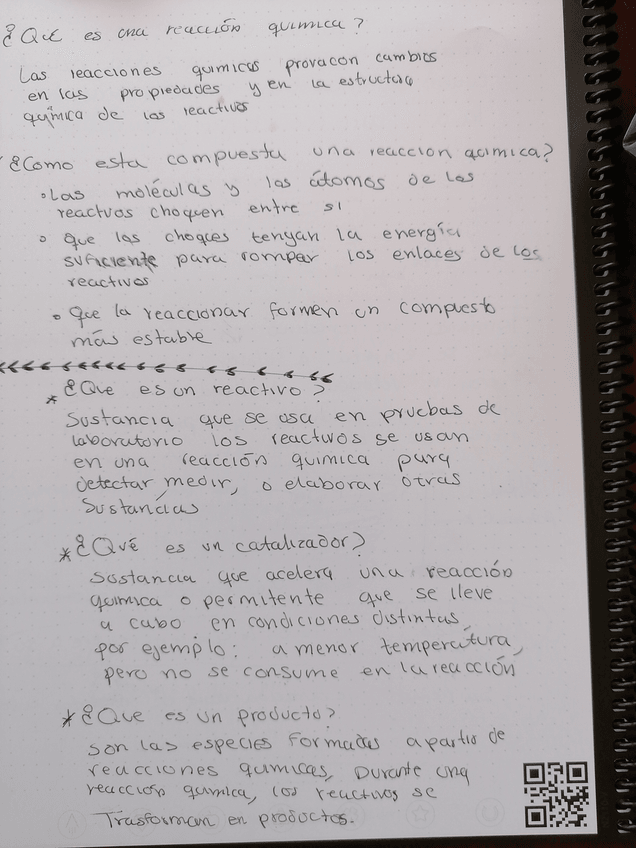 ¿Qué es una reacción química?
Las reacciones quimicas provacan cambios
en las propiedades y en la estructura
química de los reactivos
¿Como esta compuesta una reaccion quimica?
•Las moléculas y los átomos de los
reactivos choquen entre si
• que los choqes tengan la energía
suficiente para romper los enlaces de los
reactivos
• Que la reaccionar formen un compuesto
más estable
* ¿Que es un reactivo?
Sustancia que se usa en pruebas de
laboratorio los reactivos se usan
en una reacción quimica para
detectar medir, o elaborar otras
Sustancías
* ¿Qué es un catalizador?
Sustancia que acelera una reacción
quimica o permitente que se lleve
a cabo en condiciones distintas,
por ejemplo: a menor temperatura,
pero no se consume en la reacción
* ¿Que es un producto?
son las especies formadas a partir de
reacciones quimicas, Durante una
reacción quimica, los reactivos se
Trasforman en productos.